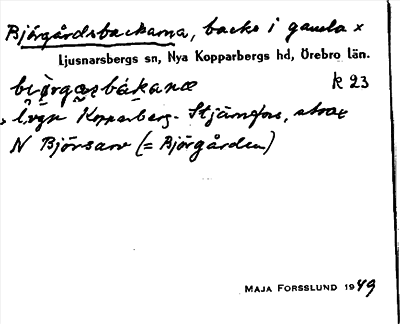 Björgårdsbackarna, backe i gamla x
Ljusnarsbergs sn, Nya Kopparbergs hd, Örebro län.
k 23
l.vgn Kopparberg-Stjärnfors, strax
N Björsarv (= Björgården)
MAJA FORSSLUND 1949